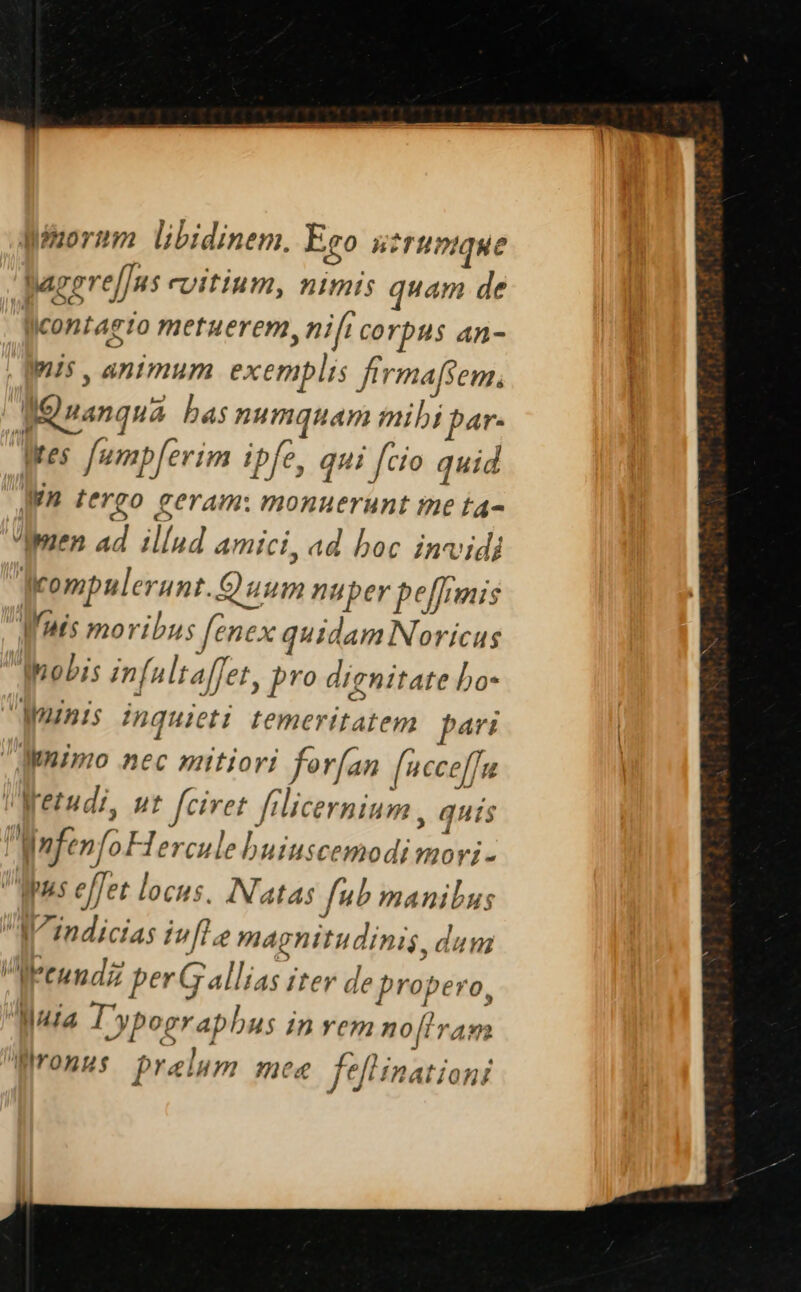 libidinem. Ego utrumque
vitium, nimis quam de
contagio metuerem, nisi corpus an-
nis, animum exemplis firmassem.
Quanquã has numquam mihi par-
tes sumpserim ipse, qui scio quid
in tergo geram: monuerunt me ta-
men ad illud amici, ad hoc invidi
compulerunt. Quum nuper pessimis
suis moribus senex quidam Noricus
nobis insultasset, pro dignitate ho-
minis inquieti temeritatem pari
animo nec mitiori forsan successu
retudi, ut sciret silicernium, quis
infenso Hercule huiuscemodi mori-
bus esset locus. Natas sub manibus
Vindicias iustæ magnitudinis, dum
per Gallias iter depropero,
quia Typographus in rem nostram
pronus prælum meæ festinationi